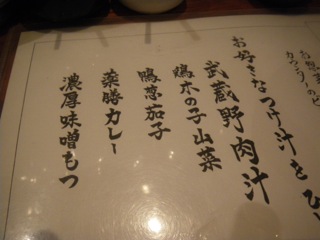 お好きなつけ汁をひ
武蔵野肉汁
鴨木の子山菜
鴨葱茄子
薬膳カレー
濃厚味噌もつ